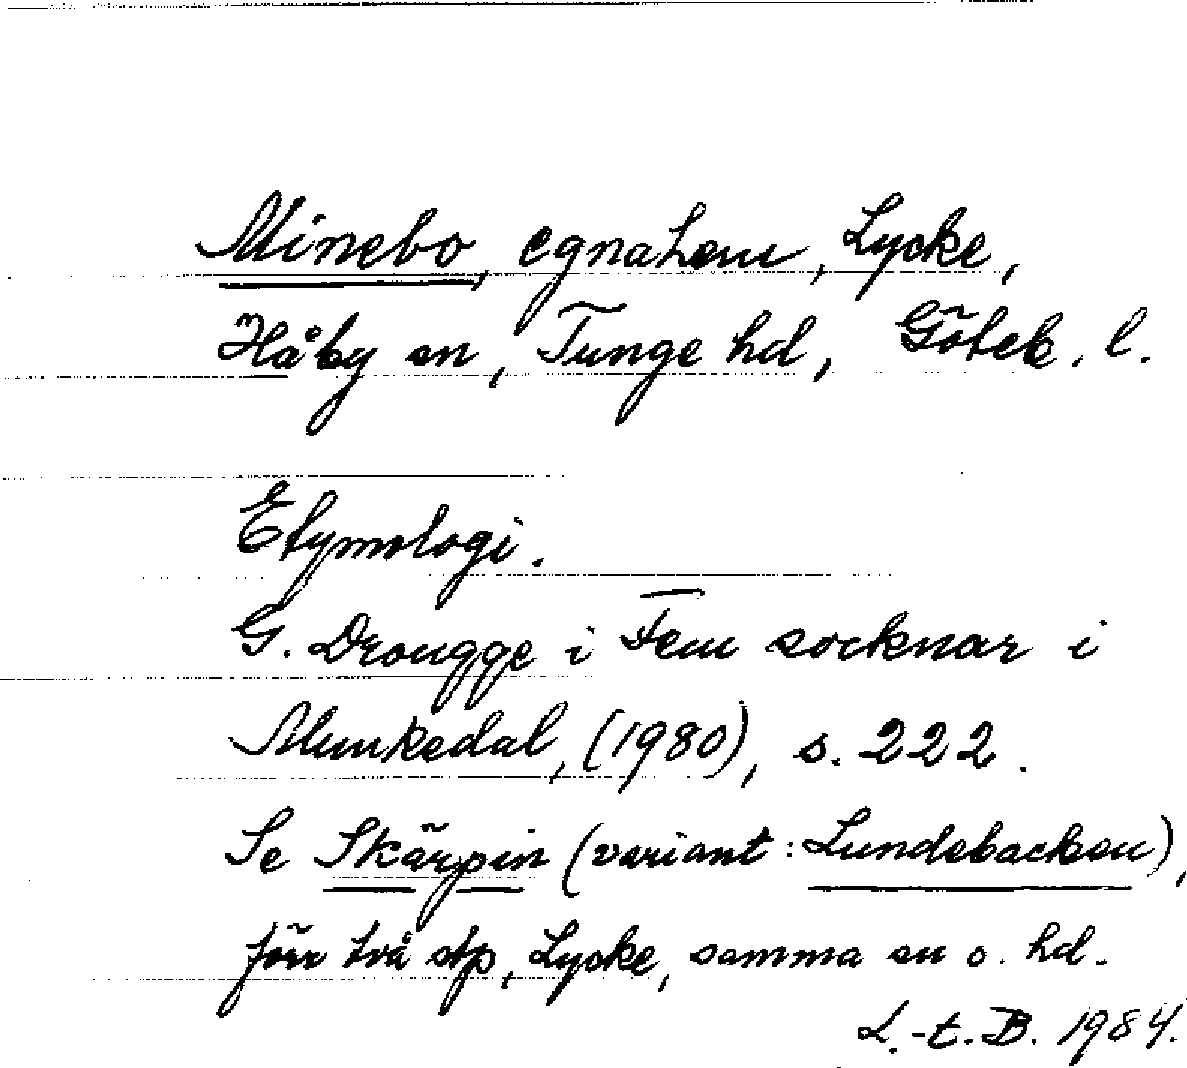 Minebo, egnahem, Lycke,
Håby sn, Tunge hd, Göteb. l.
Etymologi.
G. Drougge i Fem socknar i
Munkedal, (1980), s. 222.
Se Skärpin (variant: Lundebacken),
förr två stp, Lycke, samma sn o. hd.
L.-t. B. 1984.